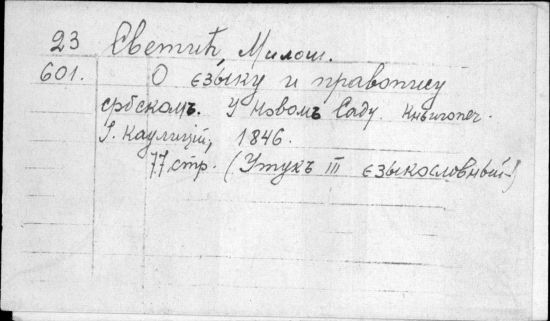 23 Светић, Милош.
601. О єзыку и правопису
србскомъ. У Новомъ Саду. Книгопеч.
І. Каулиціи, 1846.
77 стр. (Утукъ III єзыкословный)